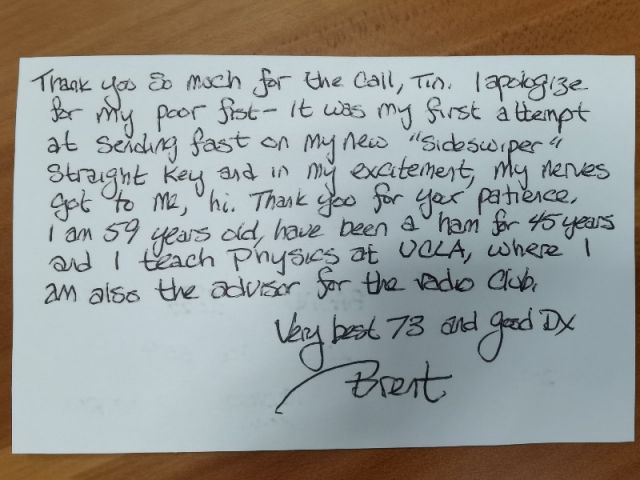 Thank you so much for the call, Tin. I apologize
for my poor fist - it was my first attempt
at sending fast on my new "Sideswiper"
Straight Key and in my excitement, my nerves
got to me, hi. Thank you for your patience.
I am 59 years old, have been a ham for 45 years
and I teach Physics at UCLA, where I
am also the advisor for the radio club.
Very best 73 and good DX
Brent